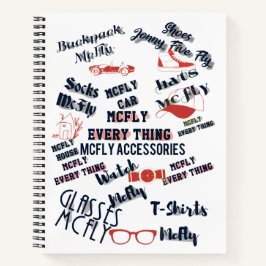 Backpack
McFly
Shoes
Jonny Five Fly
Socks
McFly
hats
McFly
MCFLY
CAR
MCFLY
EVERY THING
MCFLY ACCESSORIES
MCFLY
HOUSE
MCFLY
EVERY THING
MCFLY
EVERY THING
MCFLY
EVERY THING
Watch
McFly
GLASSES
MCFLY
T-Shirts
McFly